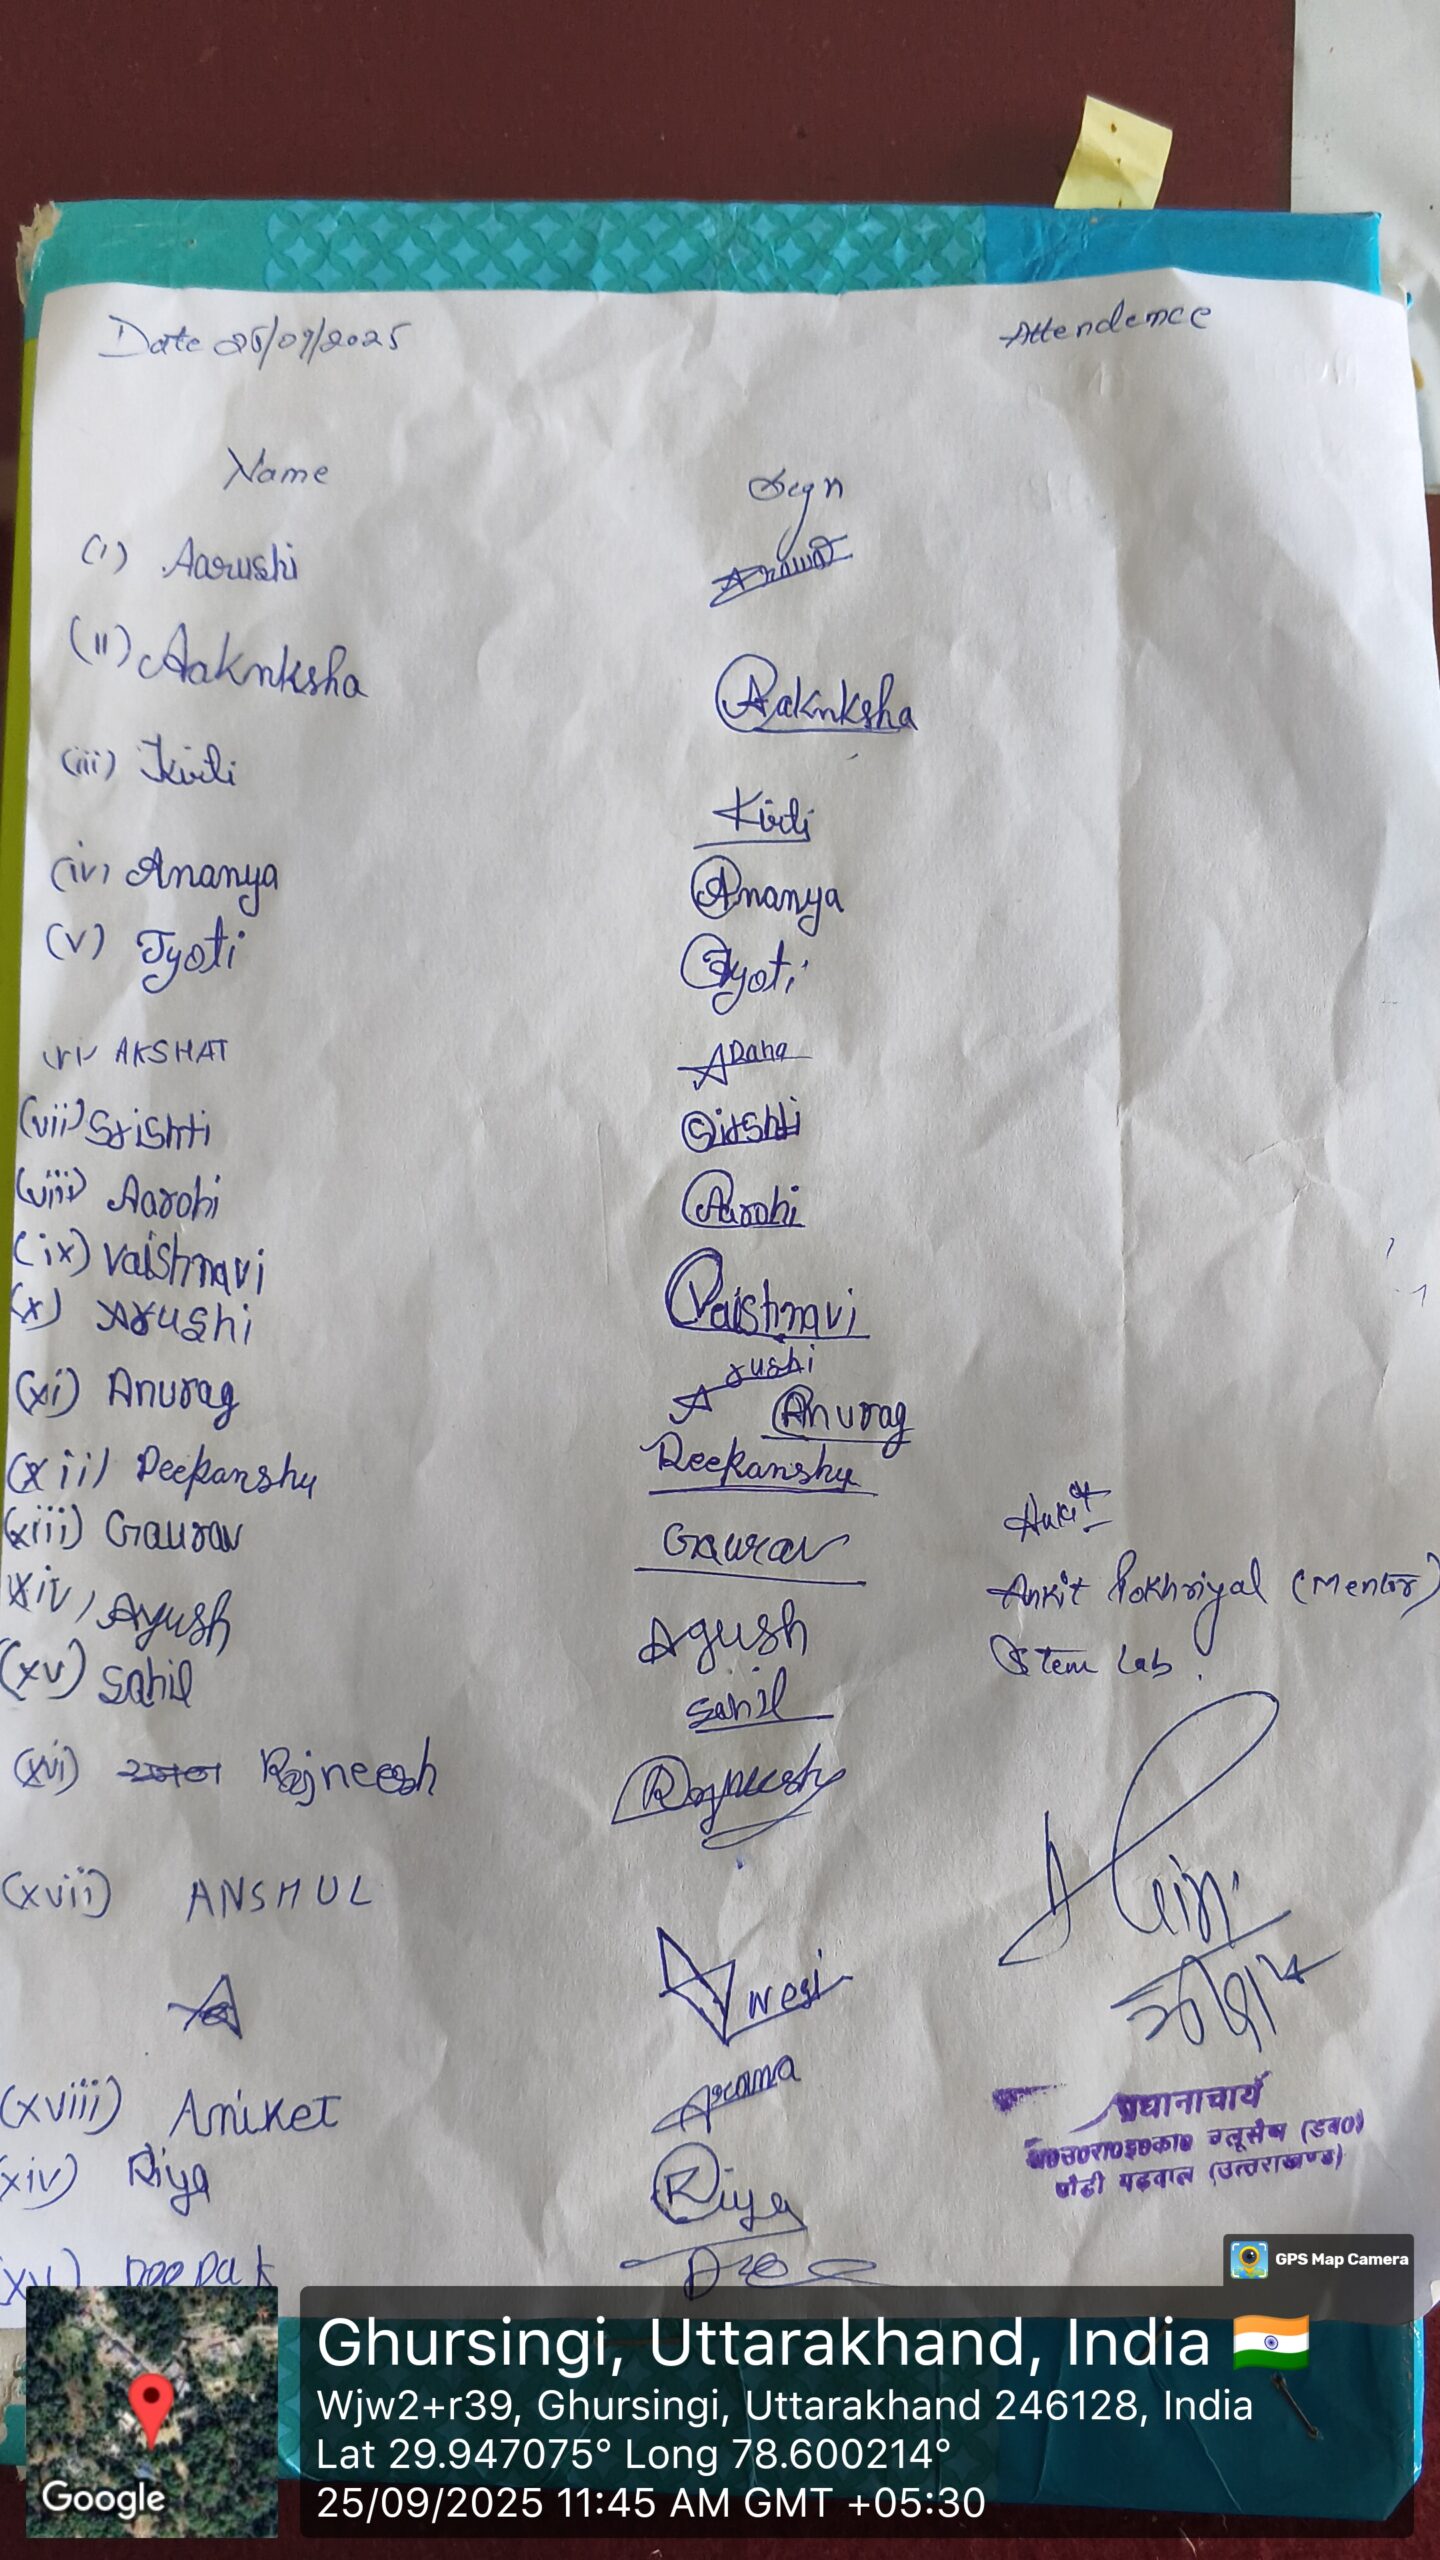 Date 25/09/2025 Attendence
Name Sign
(i) Aarushi
(ii) Aaknksha Aaknksha
(iii) Kirti Kirti
(iv) Ananya Ananya
(v) Jyoti Jyoti
(vi) AKSHAT ARana
(vii) Srishti Sirshti
(viii) Aarohi Aarohi
(ix) Vaishnavi Vaishnavi
(x) Arushi Arushi
(xi) Anurag Anurag
(xii) Deepanshu Deepanshu
(xiii) Gaurav Gaurav
(xiv) Ayush Ayush
(xv) Sahil Sahil
(xvi) Rajneesh Rajneesh
(xvii) ANSHUL
Negi
(xviii) Aniket
(xiv) Riya Riya
(xv) Deepak
Ankit
Ankit Pokhriyal (Mentor)
Stem Lab.
प्रधानाचार्य
(ड्ब०)
पौड़ी गढ़वाल (उत्तराखण्ड)
GPS Map Camera
Google
Ghursingi, Uttarakhand, India
Wjw2+r39, Ghursingi, Uttarakhand 246128, India
Lat 29.947075° Long 78.600214°
25/09/2025 11:45 AM GMT +05:30